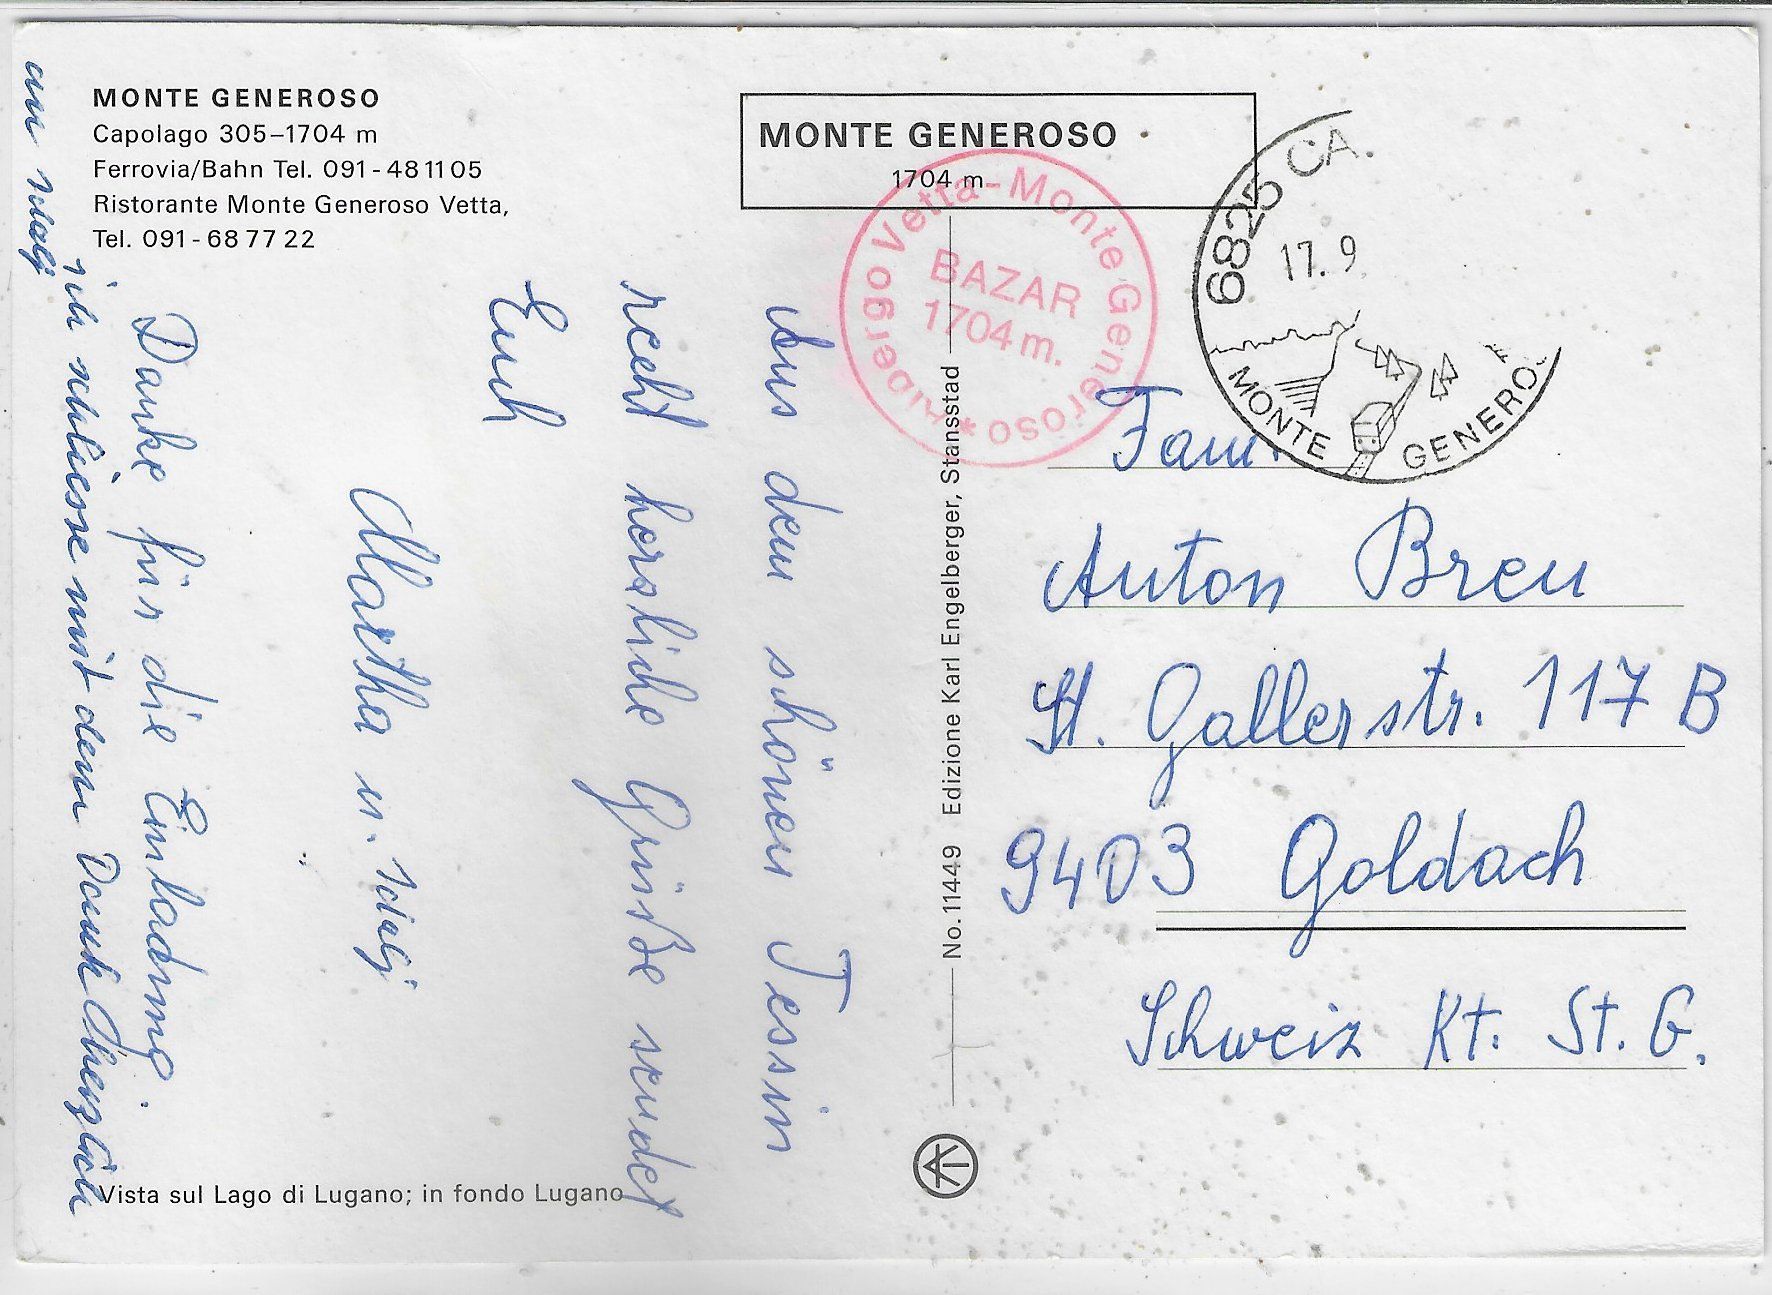 MONTE GENEROSO
Capolago 305–1704 m
Ferrovia/Bahn Tel. 091-48 11 05
Ristorante Monte Generoso Vetta,
Tel. 091-68 77 22
MONTE GENEROSO
1704 m
Albergo Vetta-Monte Generoso *
BAZAR
1704 m.
6825 CA.
17. 9.
MONTE GENERO
Aus dem schönen Tessin
recht herzliche Grüße sendet
Euch
Martha u. Willj
Danke für die Einladung.
ich schliesse mit dem Dank herzlich
an Willj
Vista sul Lago di Lugano; in fondo Lugano
No. 11449 Edizione Karl Engelberger, Stansstad
Fam.
Anton Breu
St. Gallerstr. 117 B
9403 Goldach
Schweiz Kt. St. G.